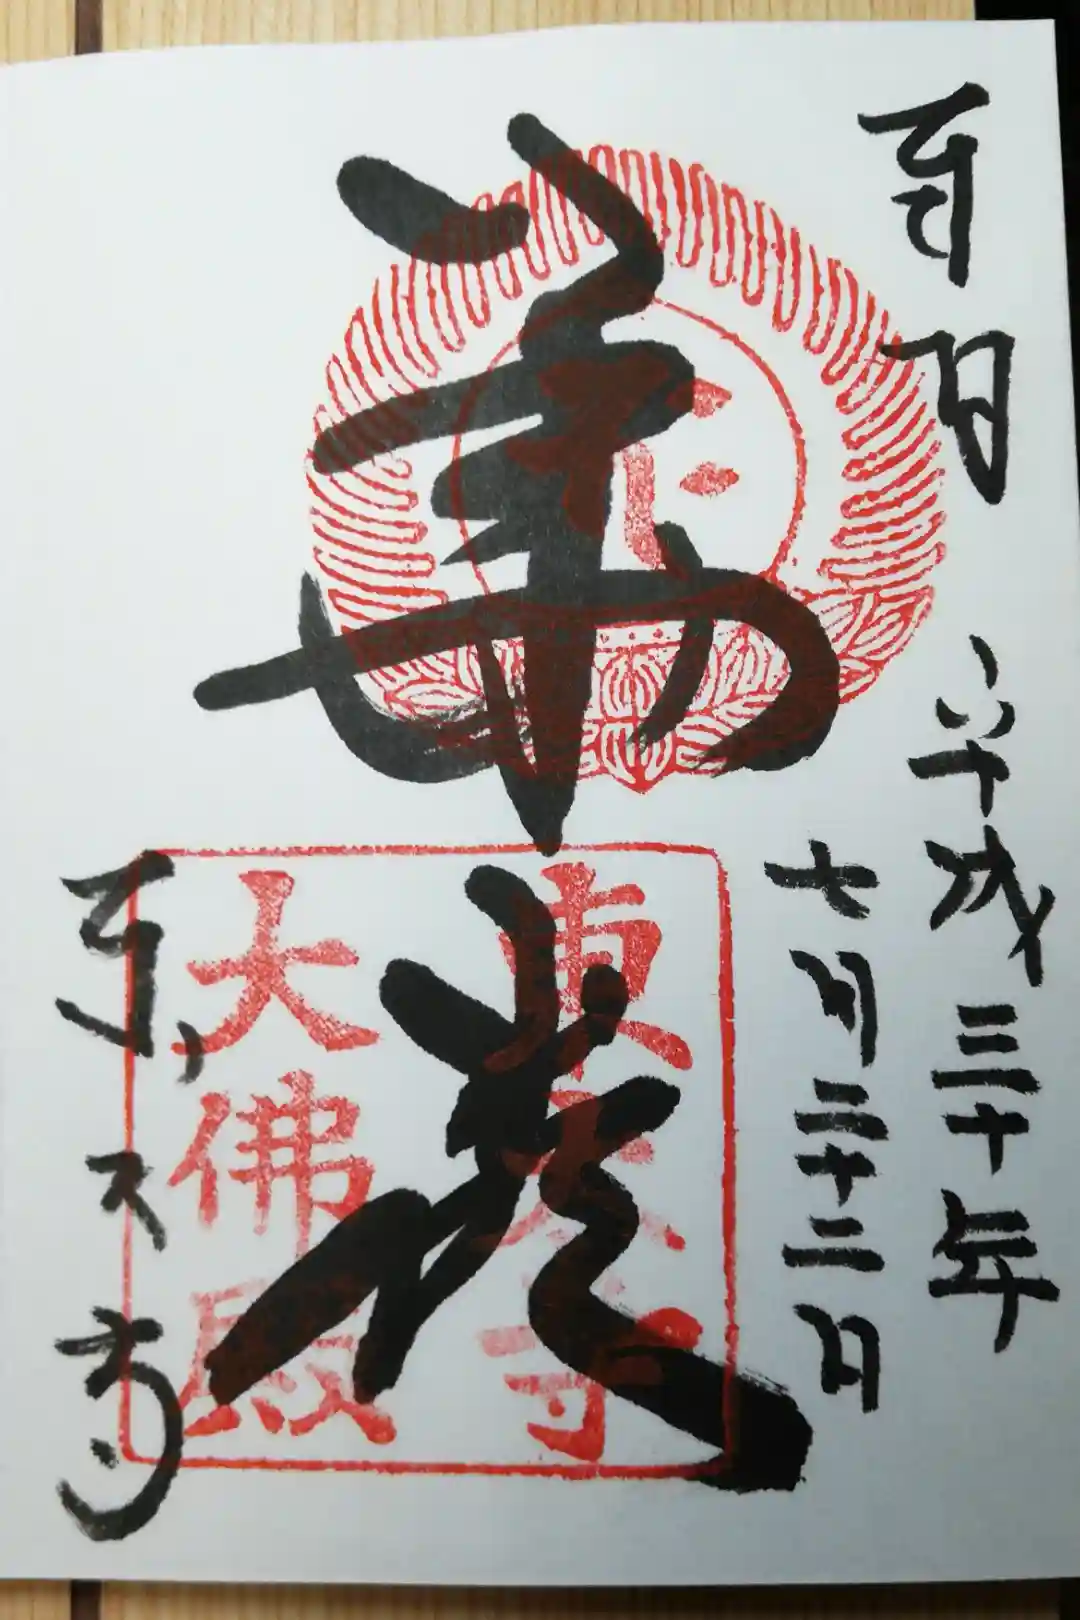 平成三十年
七月二十二日
華厳
東大寺
大佛殿
東大寺